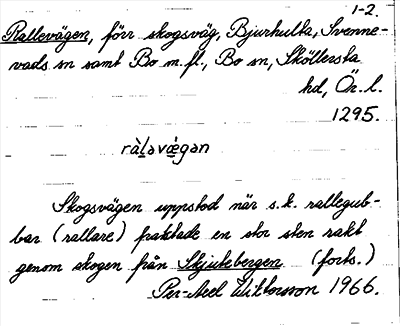 1-2.
Rallevägen, förr skogsväg, Bjurhulta, Svenne-
vads sn samt Bo m.fl., Bo sn, Sköllersta
hd, Ör. l.
1295.
ràləvǽgən
Skogsvägen uppstod när s.k. rallegub-
bar (rallare) fraktade en stor sten rakt
genom skogen från Skjutebergen. (forts.)
Per-Axel Wiktorsson 1966.